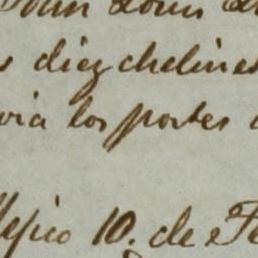 s diez chelines
via los portes
Mejico 10. de Fe